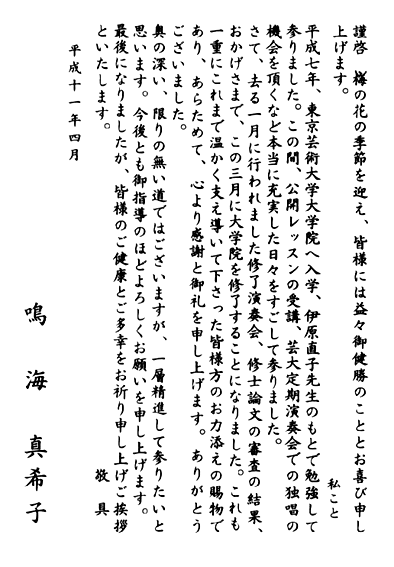 謹啓　梅の花の季節を迎え、皆様には益々御健勝のこととお喜び申し
上げます。
私こと
平成七年、東京芸術大学大学院へ入学、伊原直子先生のもとで勉強して
参りました。この間、公開レッスンの受講、芸大定期演奏会での独唱の
機会を頂くなど本当に充実した日々をすごして参りました。
さて、去る一月に行われました修了演奏会、修士論文の審査の結果、
おかげさまで、この三月に大学院を修了することになりました。これも
一重にこれまで温かく支え導いて下さった皆様方のお力添えの賜物で
あり、あらためて、心より感謝と御礼を申し上げます。ありがとう
ございました。
奥の深い、限りの無い道ではございますが、一層精進して参りたいと
思います。今後とも御指導のほどよろしくお願いを申し上げます。
最後になりましたが、皆様のご健康とご多幸をお祈り申し上げご挨拶
といたします。
敬具
平成十一年四月
鳴海真希子